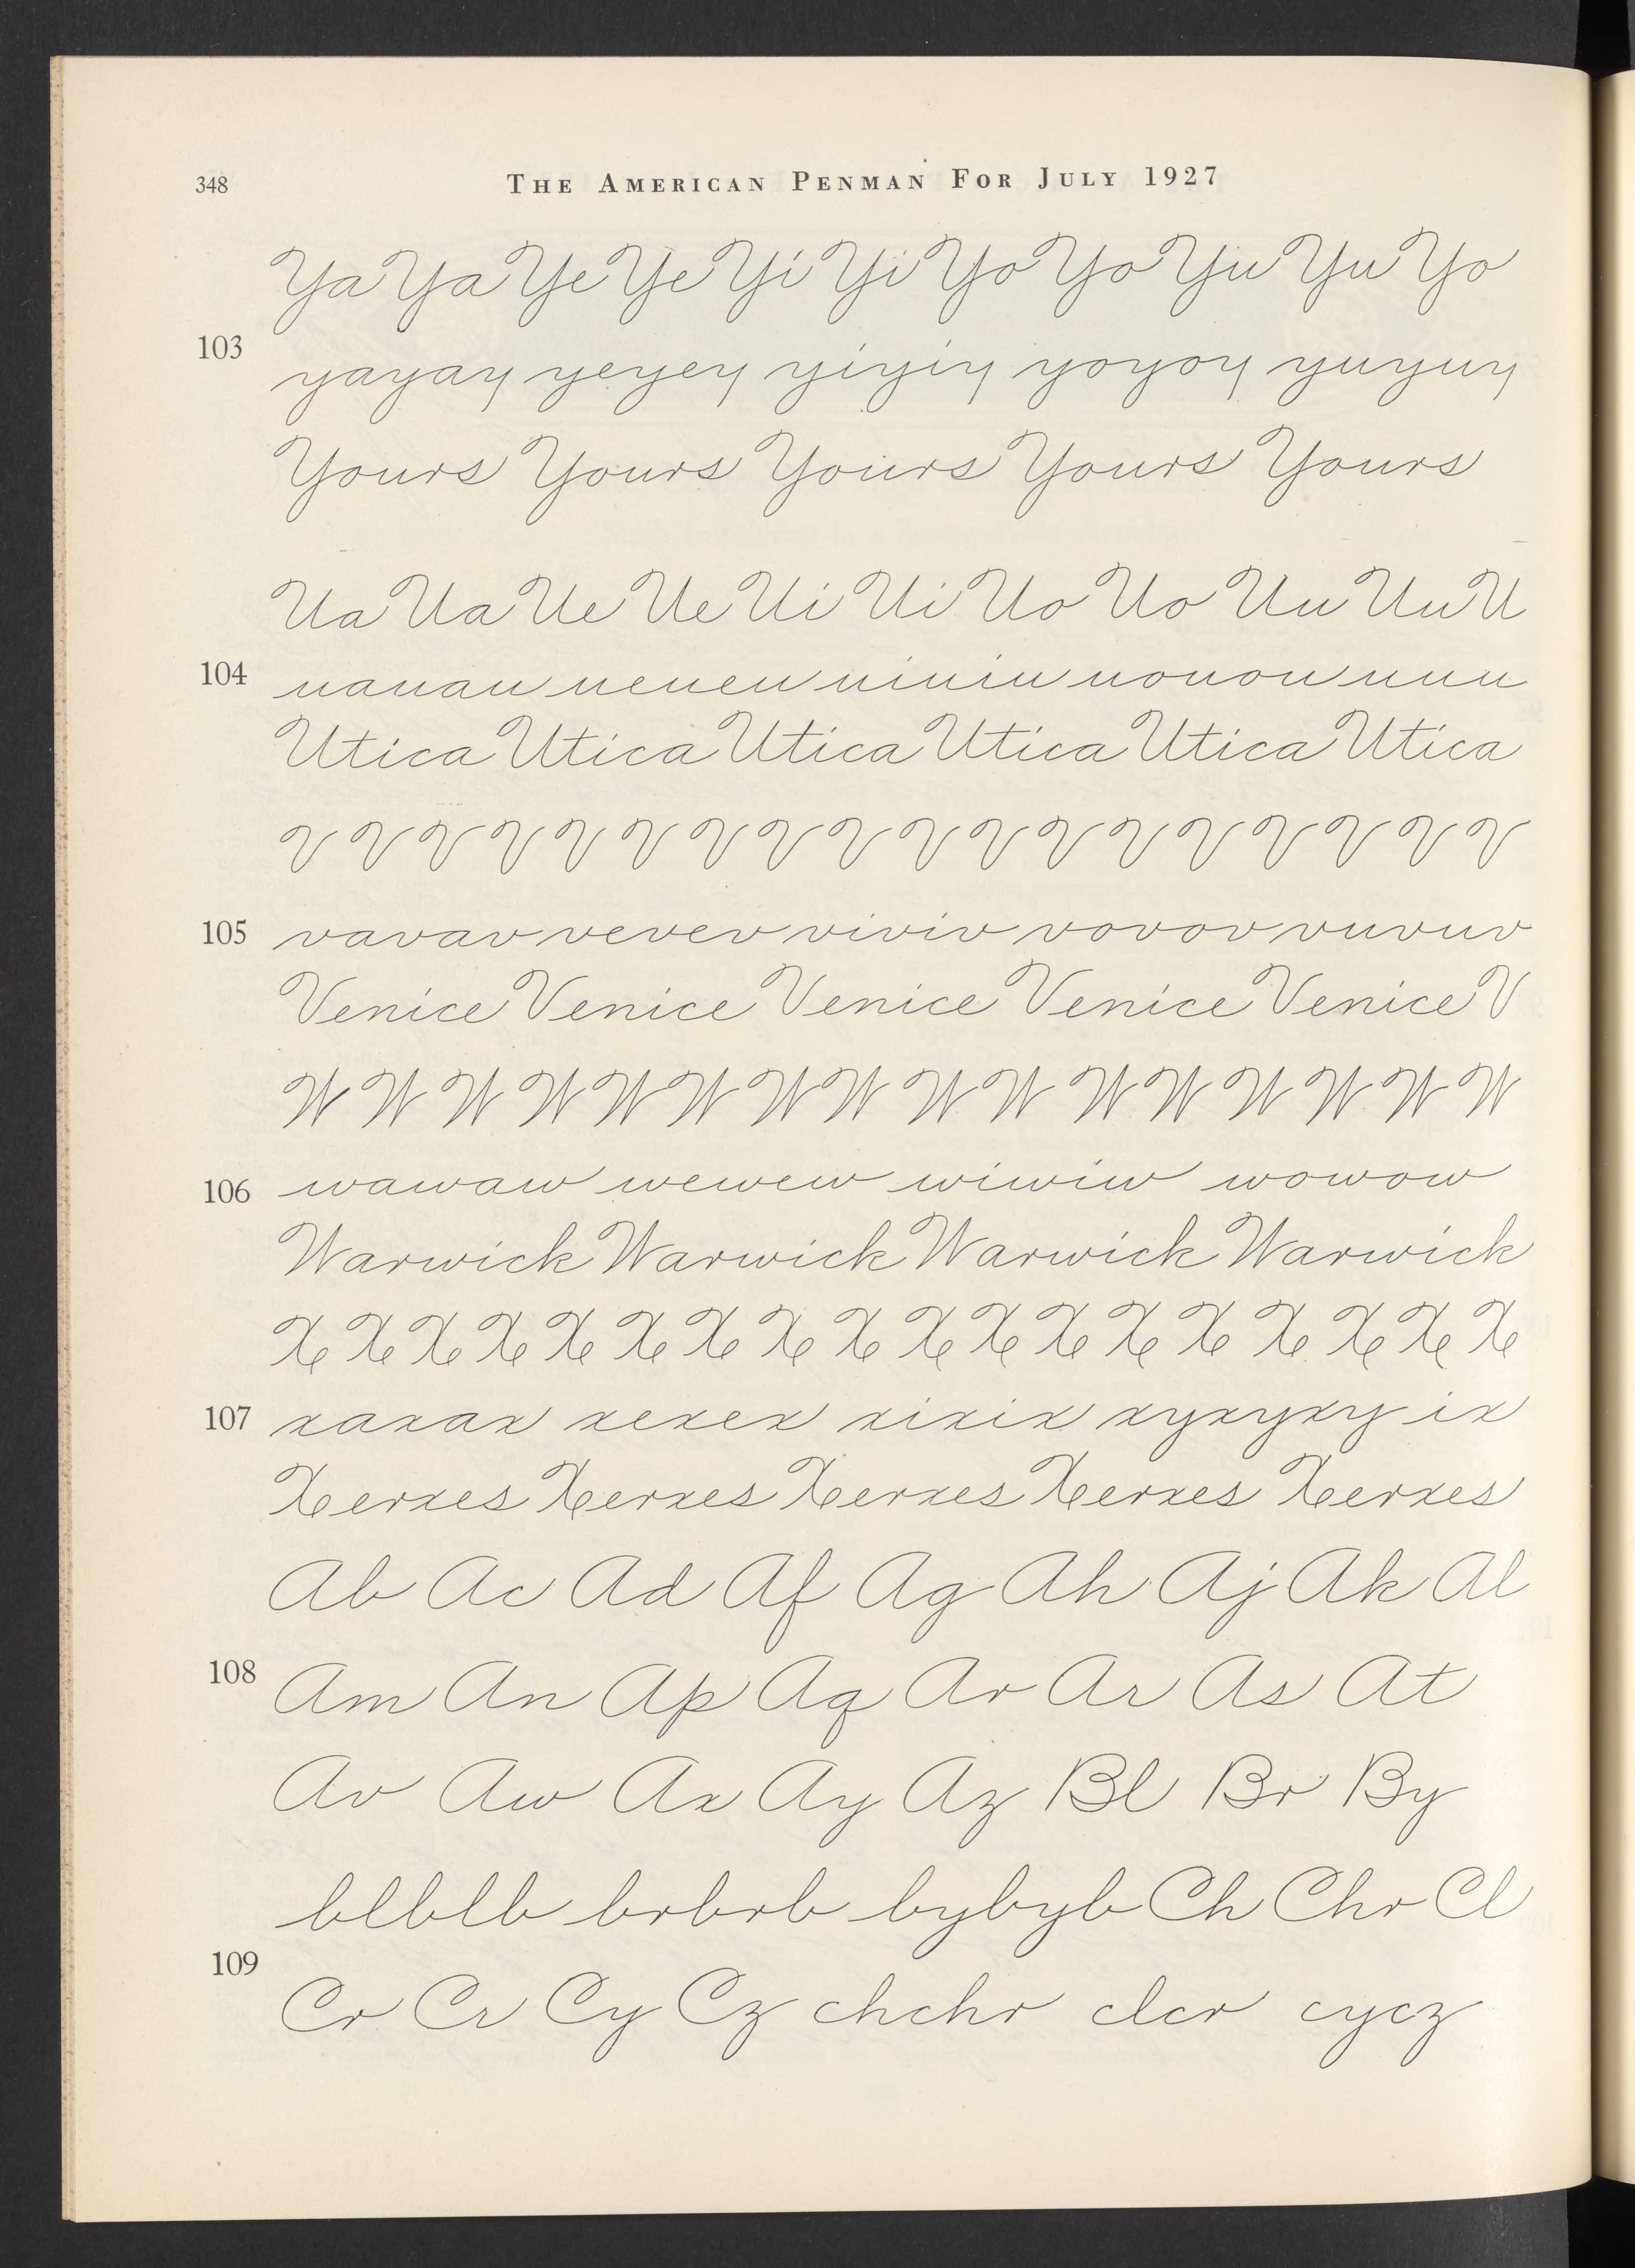 348 THE AMERICAN PENMAN FOR JULY 1927
Ya Ya Ye Ye Yi Yi Yo Yo Yu Yu Yo
103
yayay yeyey yiyiy yoyoy yuyuy
Yours Yours Yours Yours Yours
Ua Ua Ue Ue Ui Ui Uo Uo Uu Uu U
104 uauau ueueu uiuiu uouou uuu
Utica Utica Utica Utica Utica Utica
V V V V V V V V V V V V V V V V V V
105 vavav vevev viviv vovov vuvuv
Venice Venice Venice Venice Venice V
W W W W W W W W W W W W W W W W
106 wawaw wewew wiwiw wowow
Warwick Warwick Warwick Warwick
X X X X X X X X X X X X X X X X X X
107 xaxax xexex xixix xyxyxy ix
Xerxes Xerxes Xerxes Xerxes Xerxes
Ab Ac Ad Af Ag Ah Aj Ak Al
108 Am An Ap Aq Ar Ar As At
Av Aw Ax Ay Az Bl Br By
blblb brbrb bybyb Ch Chr Cl
109
Cr Cr Cy Cz chchr clcr cycz